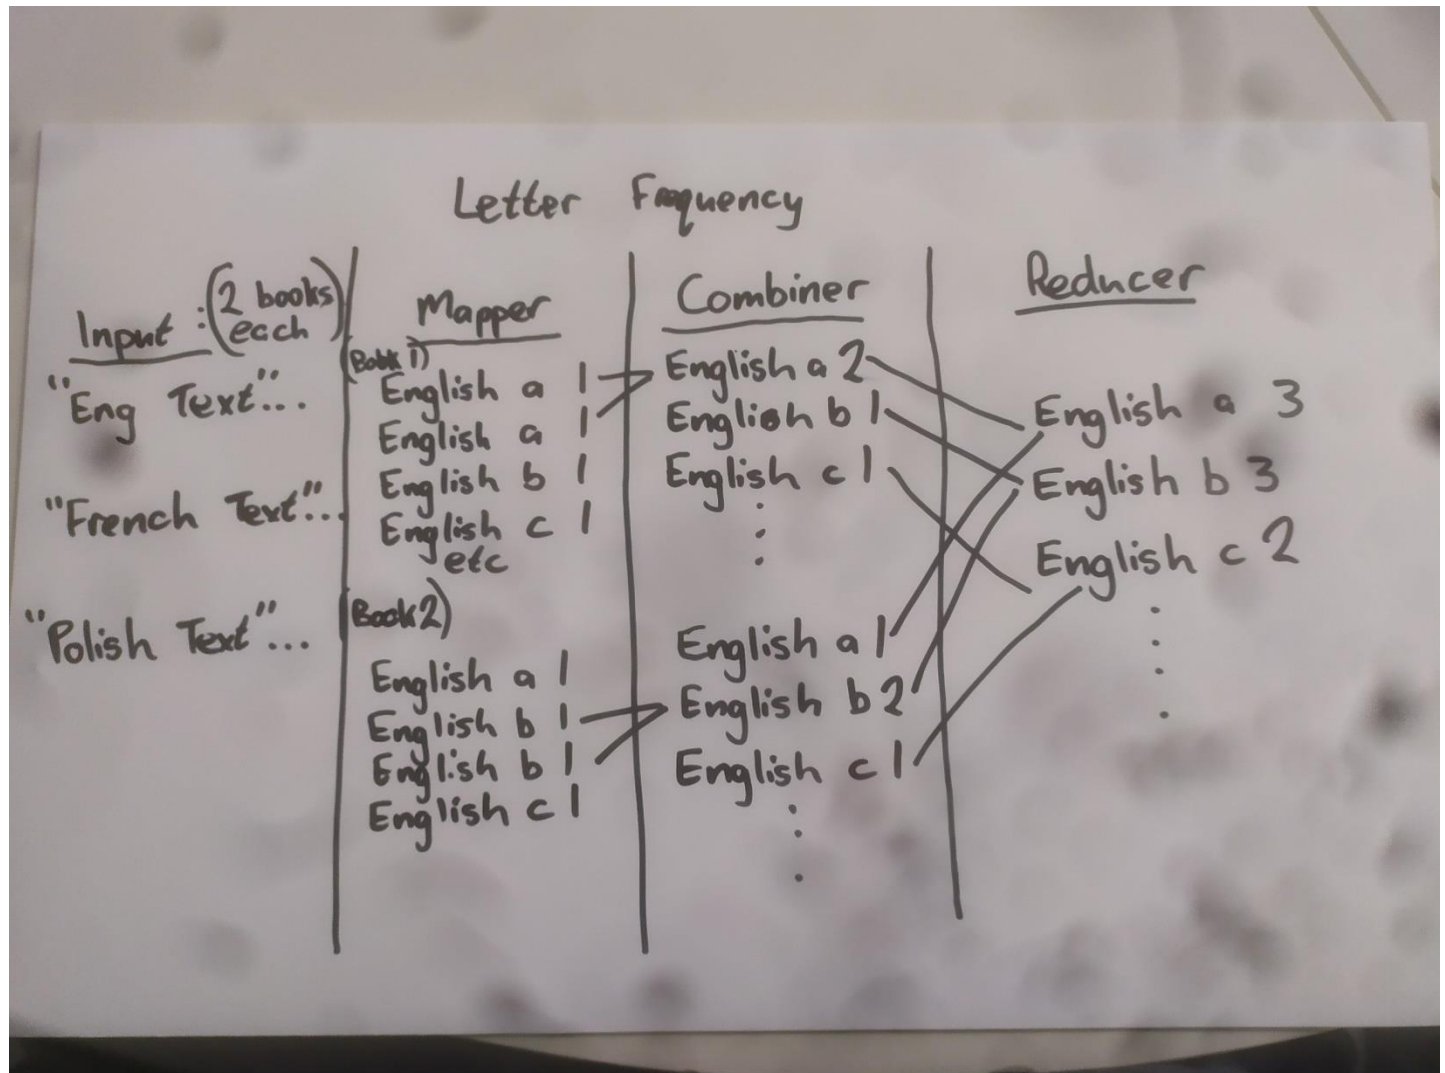 Letter Frequency
Input : (2 books each)
"Eng Text"...
"French Text"...
"Polish Text"...
Mapper
(Book 1)
English a 1
English a 1
English b 1
English c 1
etc
(Book 2)
English a 1
English b 1
English b 1
English c 1
Combiner
English a 2
English b 1
English c 1
English a 1
English b 2
English c 1
Reducer
English a 3
English b 3
English c 2